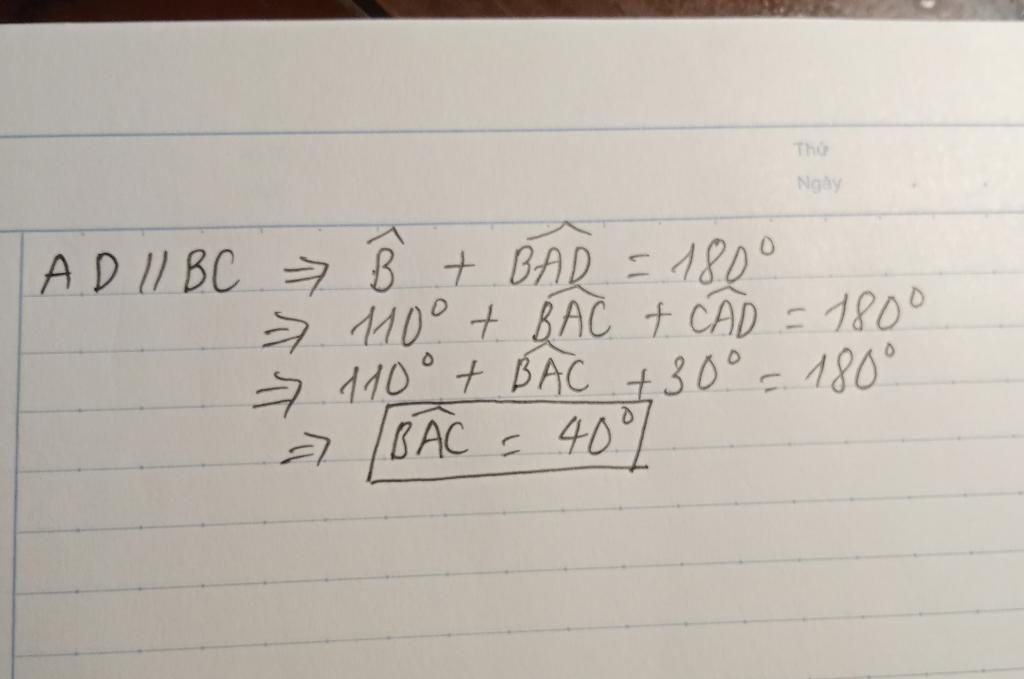 Thứ
Ngày
AD // BC ⇒ B̂ + BÂD = 180°
⇒ 110° + BÂC + CÂD = 180°
⇒ 110° + BÂC + 30° = 180°
⇒ BÂC = 40°